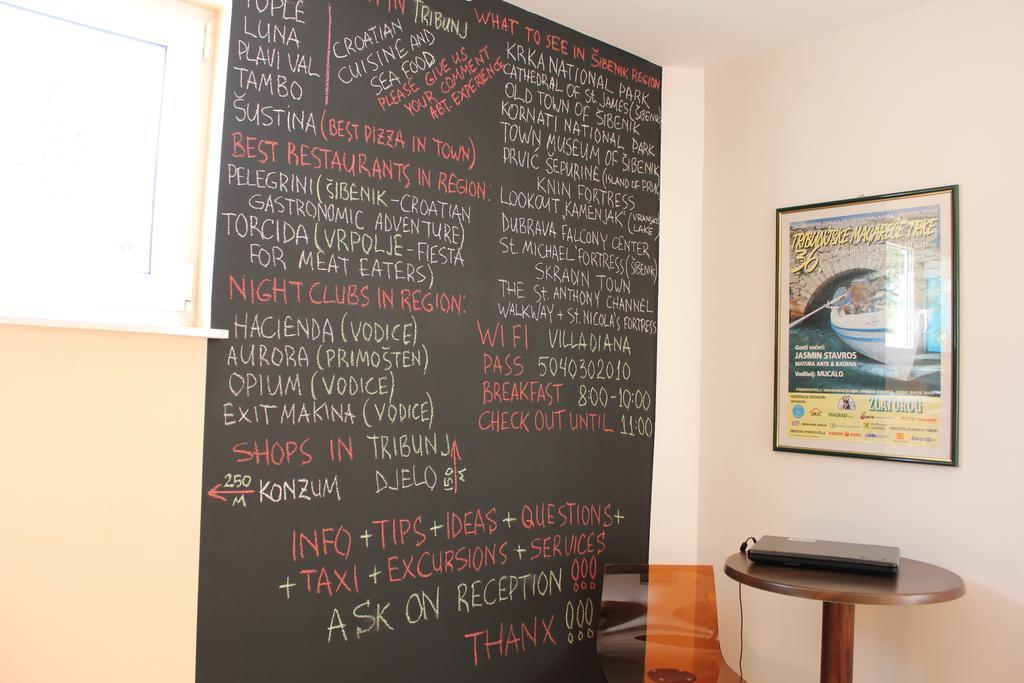 IN TRIBUNJ
LUNA
PLAVI VAL
TAMBO
ŠUSTINA (BEST PIZZA IN TOWN)
CROATIAN
CUISINE AND
SEA FOOD
PLEASE GIVE US
YOUR COMMENT
ABT. EXPERIENCE
BEST RESTAURANTS IN REGION:
PELEGRINI (ŠIBENIK-CROATIAN
GASTRONOMIC ADVENTURE)
TORCIDA (VRPOLJE-FIESTA
FOR MEAT EATERS)
NIGHT CLUBS IN REGION:
HACIENDA (VODICE)
AURORA (PRIMOŠTEN)
OPIUM (VODICE)
EXIT MAKINA (VODICE)
SHOPS IN TRIBUNJ
250 M KONZUM DJELO 150 M
WHAT TO SEE IN ŠIBENIK REGION
KRKA NATIONAL PARK
CATHEDRAL OF St. JAMES (ŠIBENIK)
OLD TOWN OF ŠIBENIK
KORNATI NATIONAL PARK
TOWN MUSEUM OF ŠIBENIK
PRVIĆ ŠEPURINE (ISLAND OF PRVIĆ
KNIN FORTRESS
LOOKOUT „KAMENJAK" (VRANSKO
LAKE)
DUBRAVA FALCONRY CENTER
St. MICHAEL FORTRESS (ŠIBENIK)
SKRADIN TOWN
THE St. ANTHONY CHANNEL
WALKWAY + St. NICOLA'S FORTRESS
WIFI VILLADIANA
PASS 5040302010
BREAKFAST 8:00-10:00
CHECK OUT UNTIL 11:00
INFO + TIPS + IDEAS + QUESTIONS +
+ TAXI + EXCURSIONS + SERVICES
ASK ON RECEPTION !!!
THANX !!!
TRIBUNJSKE MAGAREĆE TRKE
36.
Gosti večeri:
JASMIN STAVROS
MATURA ANTE & BATANA
Voditelj: MUCALO
ZLATOROG